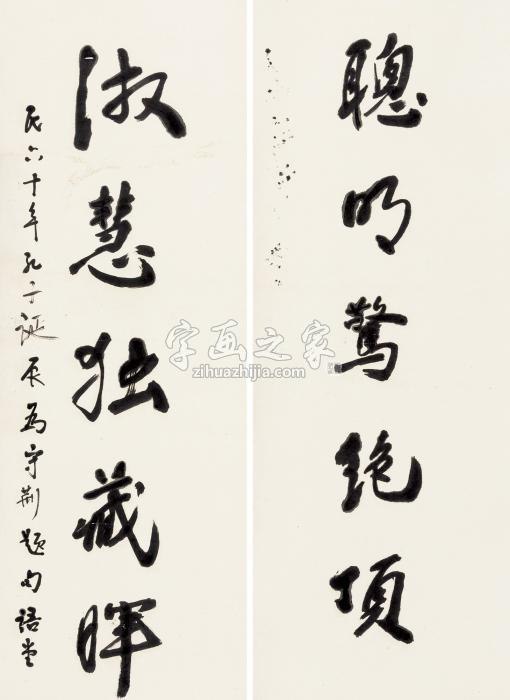 聰明驚絕頂
淑慧独藏暉
民六十年孔子誕辰為守荆題句語堂
字画之家
zihuazhijia.com